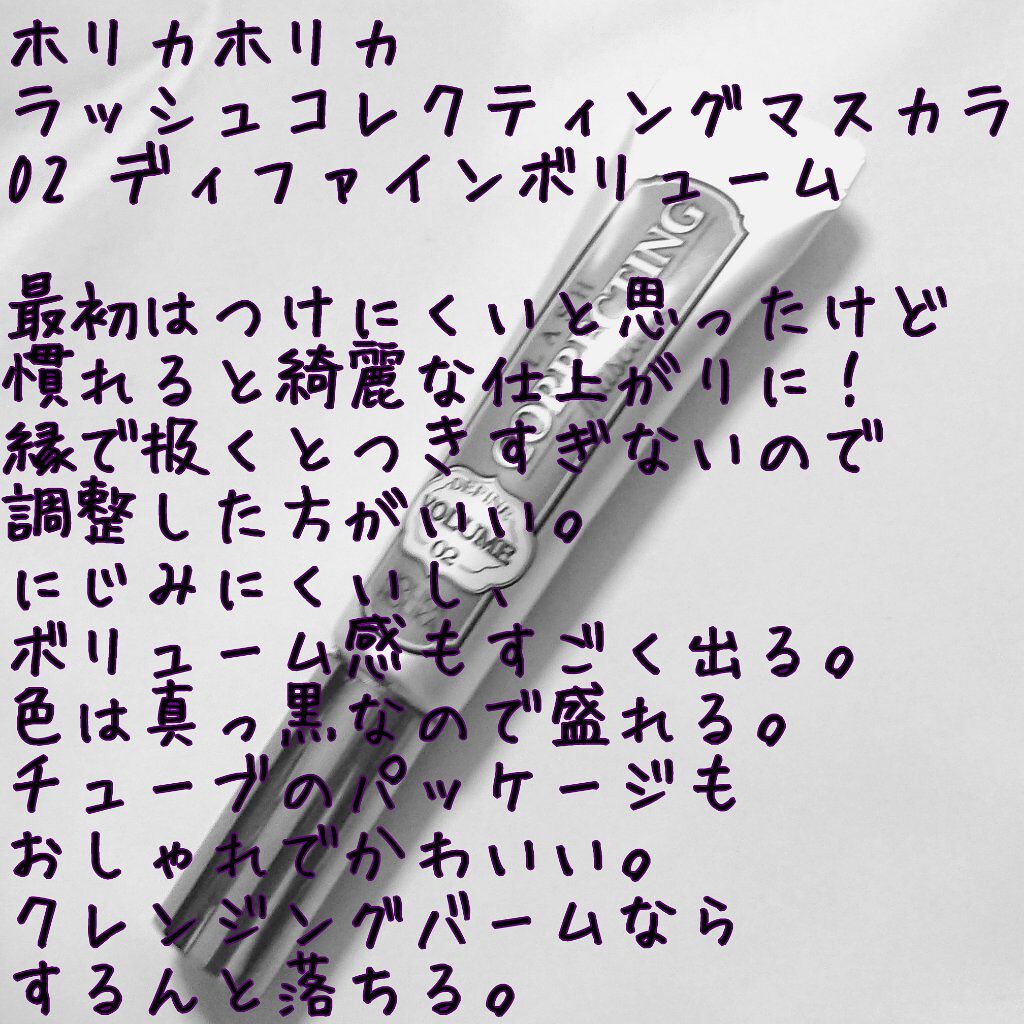 ホリカホリカ
ラッシュコレクティングマスカラ
02 ディファインボリューム
最初はつけにくいと思ったけど
慣れると綺麗な仕上がりに!
縁で扱くとつきすぎないので
調整した方がいい。
にじみにくいし、
ボリューム感もすごく出る。
色は真っ黒なので盛れる。
チューブのパッケージも
おしゃれでかわいい。
クレンジングバームなら
するんと落ちる。
LASH
CORRECTING
DEFINE
VOLUME
02